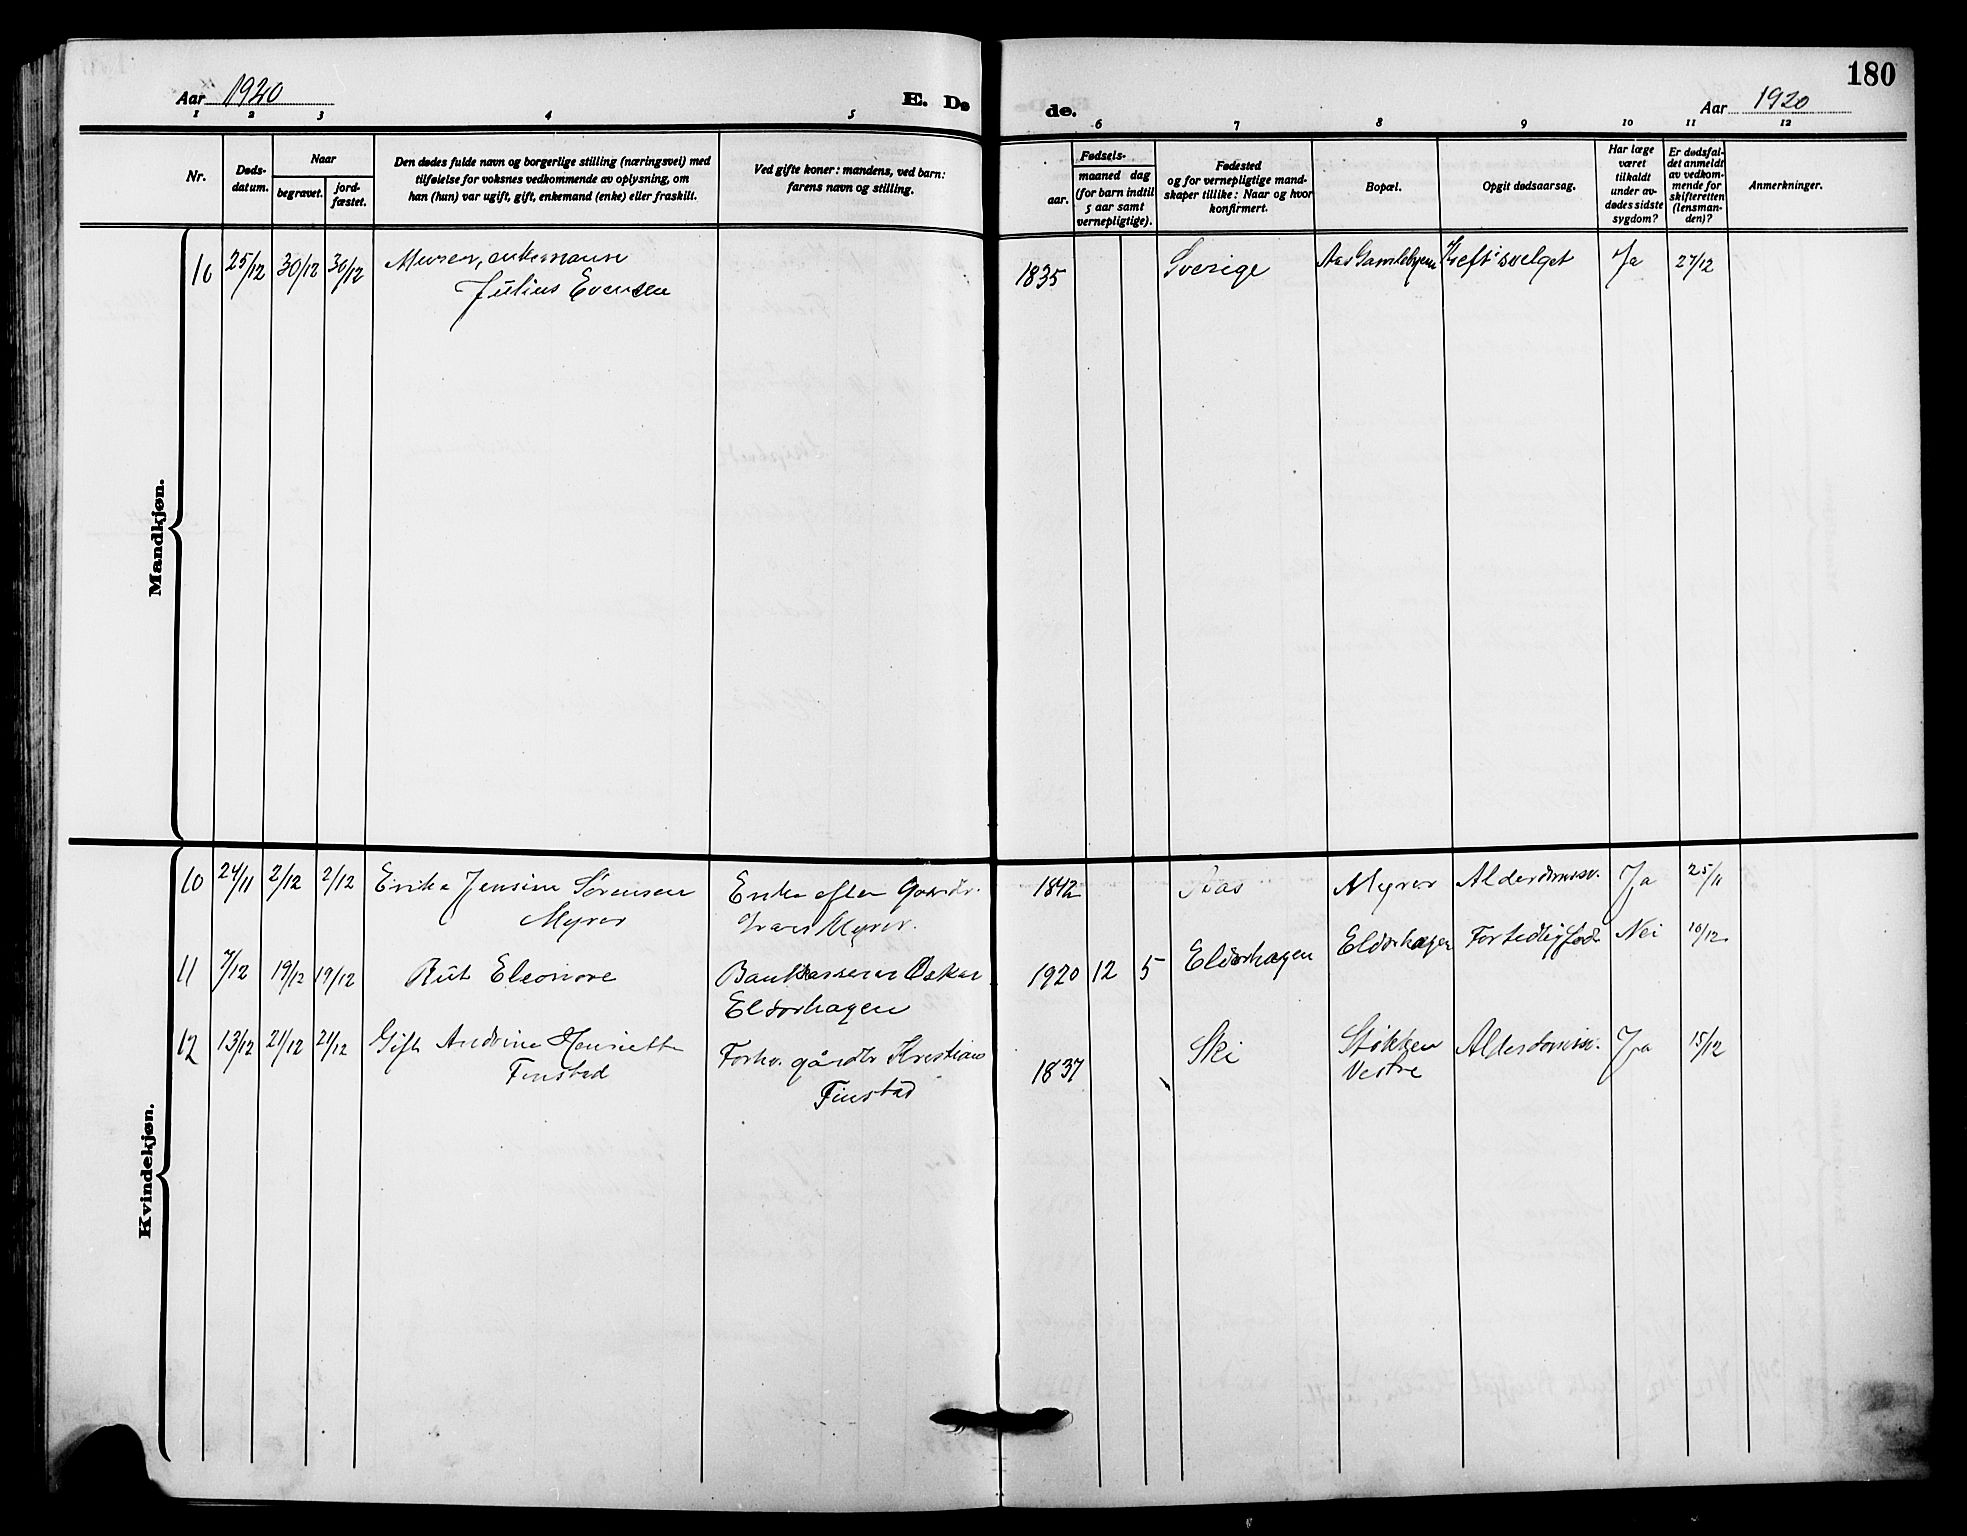 Aar 1920
E. Dø
de.
Aar 1920
180
1 2 3 4 5 6 7 8 9 10 11 12
Nr.
Døds-
datum.
Naar
begravet.
jord-
fæstet.
Den dødes fulde navn og borgerlige stilling (næringsvei) med
tilføielse for voksnes vedkommende av oplysning, om
han (hun) var ugift, gift, enkemand (enke) eller fraskilt.
Ved gifte koner: mandens, ved barn:
farens navn og stilling.
aar.
Fødsels-
maaned dag
(for barn indtil
5 aar samt
vernepligtige).
Fødested
og for vernepligtige mand-
skaper tillike: Naar og hvor
konfirmert.
Bopæl.
Opgit dødsaarsag.
Har læge
været
tilkaldt
under av-
dødes sidste
sygdom?
Er dødsfal-
det anmeldt
av vedkom-
mende for
skifteretten
(lensman-
den)?
Anmerkninger.
Mandkjøn.
10 25/12 30/12 30/12 Murer, enkemann
Julius Evensen
1835 Sverige Aas Gamlebyen Kreft i svelget Ja 27/12
Kvindekjøn.
10 24/11 2/12 2/12 Erika Jensine Sørensen
Myrer
Enke efter Gaardbr.
Myrer.
1842 Aas Myrer Ja 25/11
11 7/12 19/12 19/12 Rut Eleonore
Bankkasserer Oskar
Eldorhagen
1920 12 5 Eldorhagen Eldorhagen For tidlig født Nei 10/12
12 13/12 21/12 21/12 Gift Andrine Henriette
Finstad
Forhv. gårdbr Kristian
Finstad
1837 Ski Støkken
Vestre
Ja 15/12